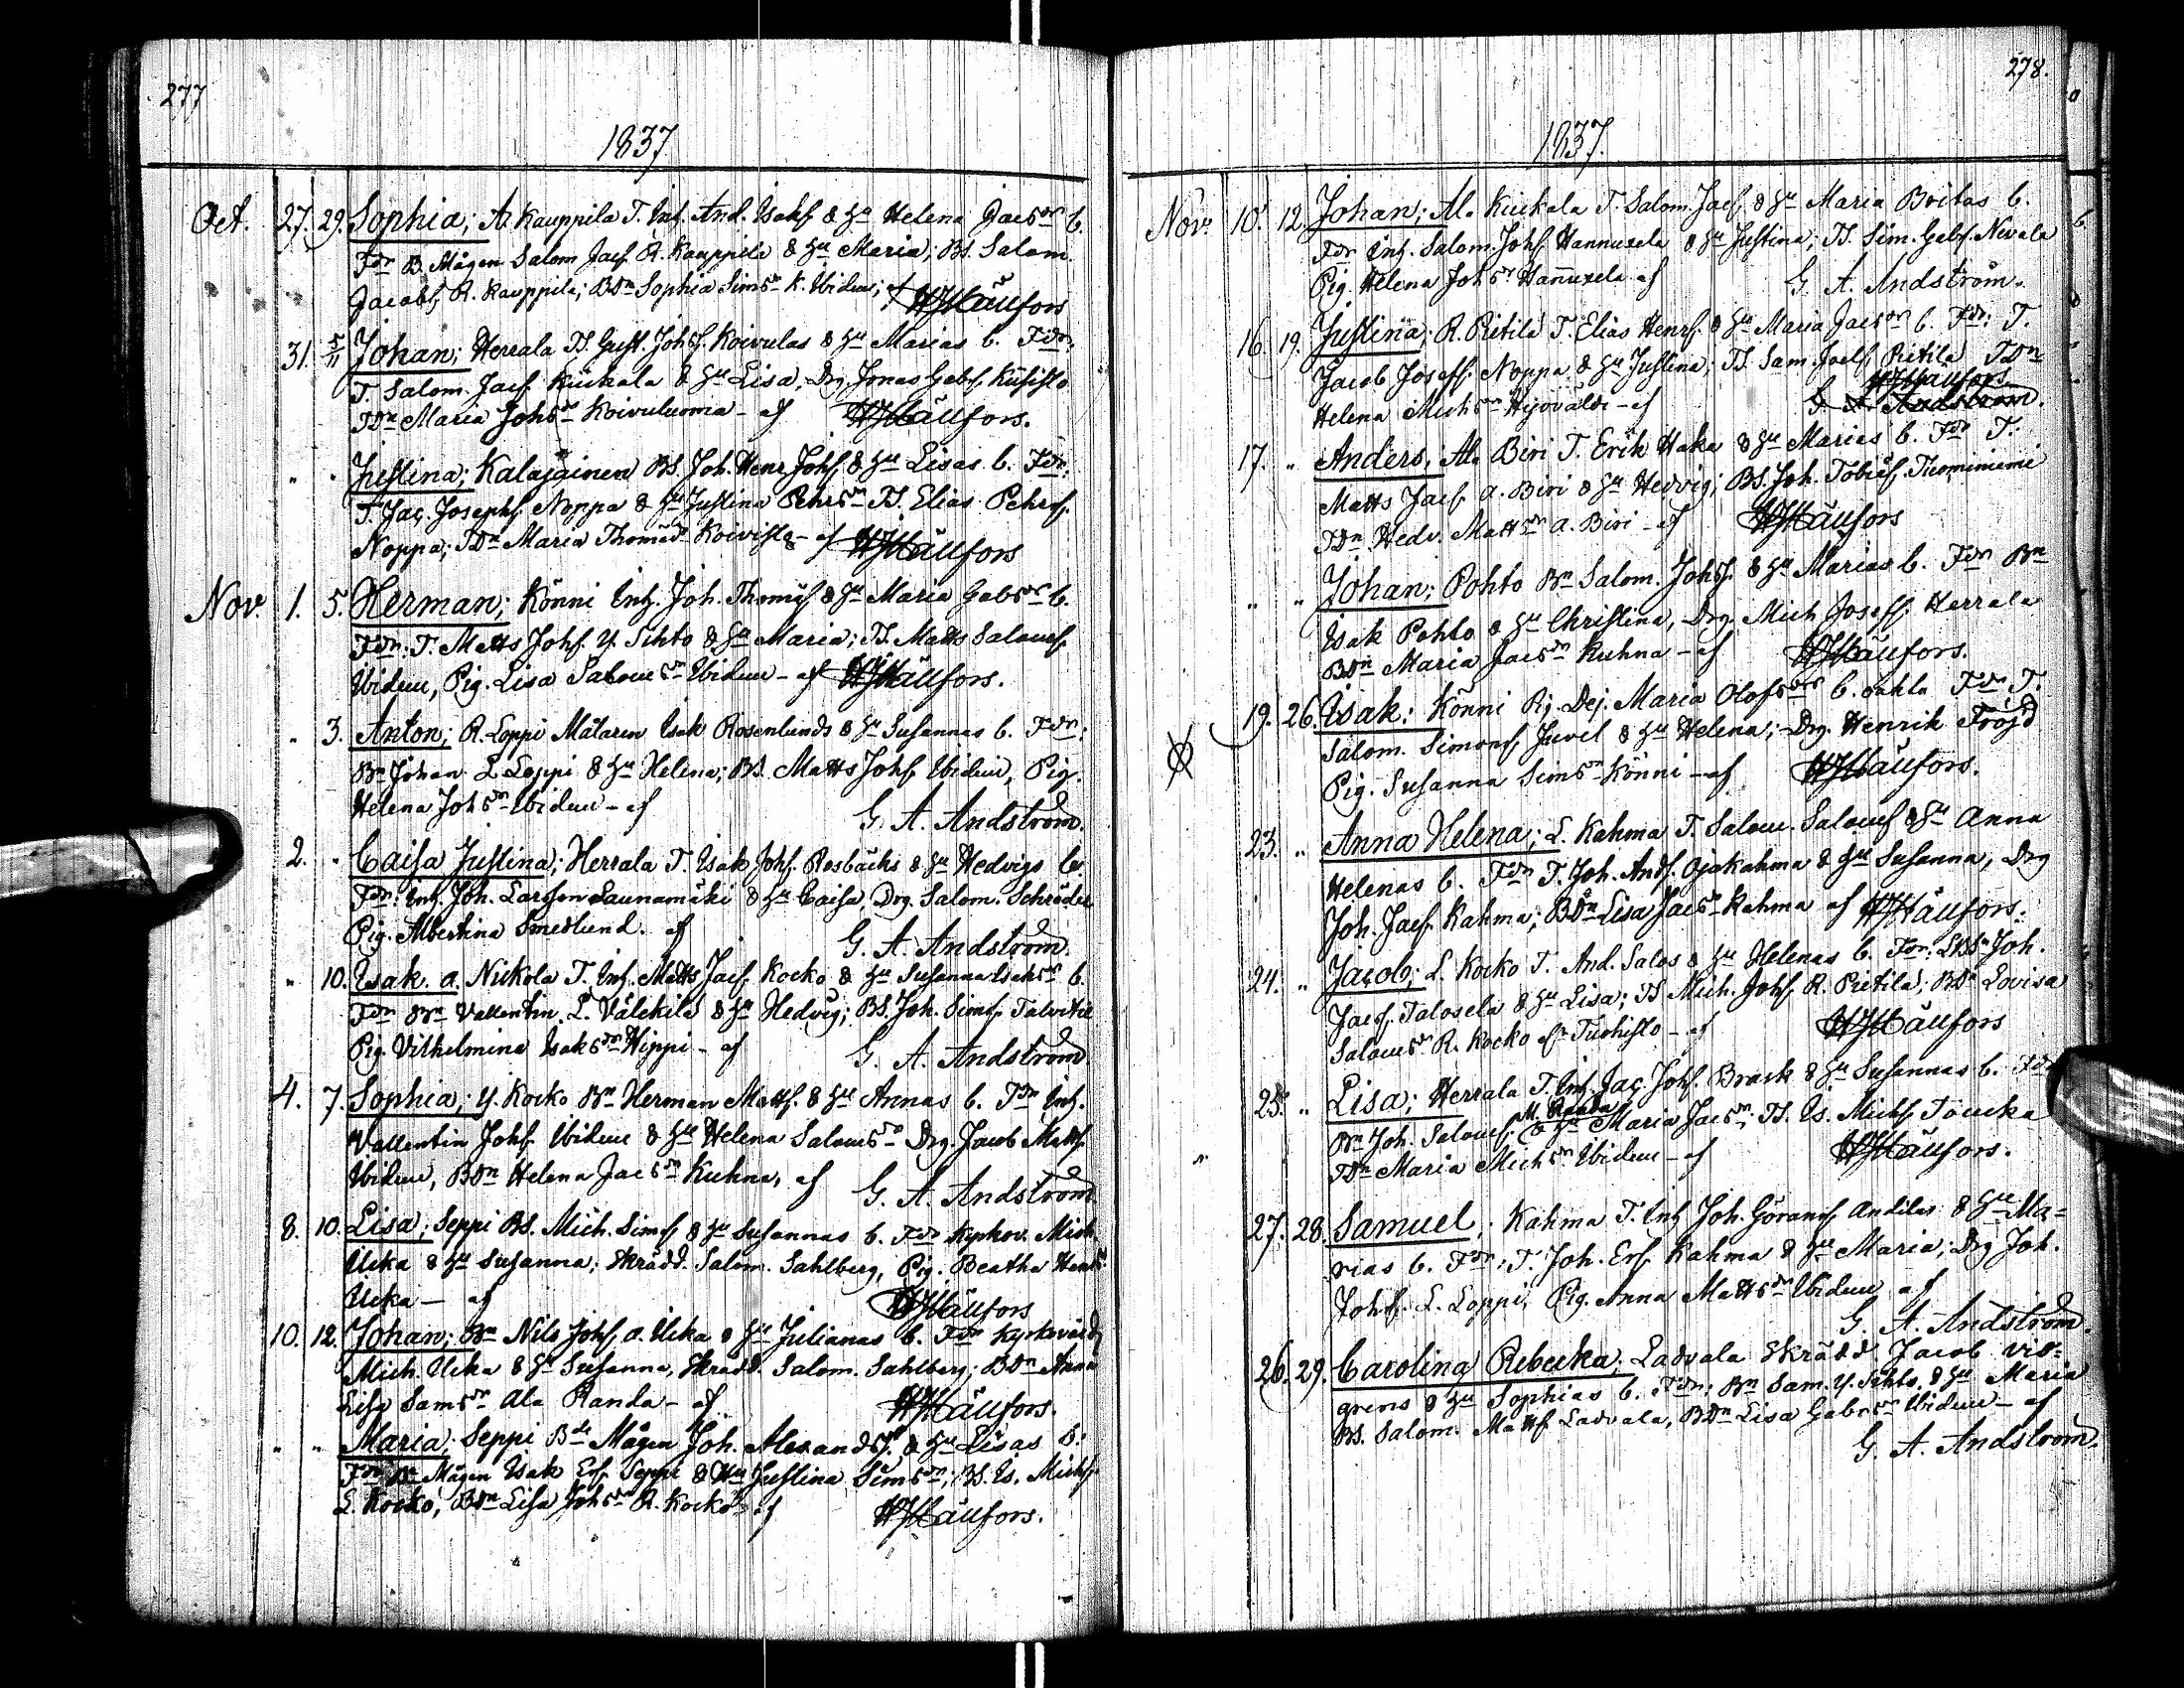 277
1837
Oct. 27. 29. Sophia; A. Kauppila T. Inh. And. Isakss. & Hu Helena Jacsdrs b.
Fdr B. Mågen Salom. Jacs. R. Kauppila & Hu Maria; BS. Salom.
Jacobs. R. Kauppila; BDn Sophia Simsdr K. Ibidem; af WHällfors
31. 5/11 Johan; Herrala TS. Gust. Johss. Koivulas & Hu Marias b. Fdr:
T. Salom. Jacs. Kuckala & Hu Lisa, Drg. Jonas Gabs. Kuhisto
TDn Maria Johsdr Koivuluoma - af WHällfors.
" " Justina; Kalajainen BS. Joh. Henr. Johs. & Hu Lisas b. Fdr:
T. Jac. Josephs. Noppa & Hu Justina Pehrsdr TS. Elias Pehrss.
Noppa; TDn Maria Thomasdr Koivisto - af WHällfors
Nov. 1. 5. Herman; Könni Inh. Joh. Thomass. & Hu Maria Gabsdrs b.
Fdr: T. Matts Johs. Y. Sihto & Hu Maria; TS. Matts Saloms.
Ibidem, Pig. Lisa Salomsdr Ibidem - af WHällfors.
" 3. Anton; R. Loppi Målaren Isak Rosenlunds & Hu Susannas b. Fdr:
Bn Johan L. Loppi & Hu Helena; BS. Matts Johs. Ibidem, Pig.
Helena Johsdr Ibidem - af G. A. Andström.
2. " Caisa Justina; Herrala T. Isak Johs. Rosbäcks & Hu Hedvigs b.
Fdr: Inh. Joh. Larsson Launamäki & Hu Caisa, Drg. Salom. Schröder
Pig. Albertina Smedlund. af G. A. Andström.
" 10. Isak. a. Nickola T. Inh. Matts Jacs. Kocko & Hu Susanna Isaksdrs b.
Fdr Bn Vallentin L. Välckilä & Hu Hedvig; BS. Joh. Sims. Talvitie
Pig. Vilhelmina Isaksdr Hippi - af G. A. Andström
4. 7. Sophia; Y. Kocko Bn Herman Matts. & Hu Annas b. Fdr Inh.
Vallentin Johs. Ibidem & Hu Helena Salomsdr Drg. Jacob Matts.
Ibidem, BDn Helena Jacsdr Kuhna, af G. A. Andström
8. 10. Lisa; Seppi BS. Mich. Sims. & Hu Susannas b. Fdr Kyrkov. Mich.
Ucka & Hu Susanna; Skrädd. Salom. Sahlberg, Pig. Beatha Henrsdr
Ucka - af WHällfors
10. 12. Johan; Bn Nils Johs. a. Ucka & Hu Julianas b. Fdr Kyrkvärd.
Mich. Ucka & Hu Susanna, Skrädd. Salom. Sahlberg; BDn Anna
Lisa Samsdr Ala Randa - af WHällfors.
" " Maria; Seppi Bde Mågen Joh. Alexands. & Hu Lisas b:
Fdr: Bn Mågen Isak Ers. Seppi & Hu Justina Simsdr; BS. Is. Michs.
L. Kocko, BDn Lisa Johsdr R. Kocko - af WHällfors.
278.
1837.
Nov. 10. 12. Johan; Al. Kuckala T. Salom. Jacs. & Hu Maria Britas b.
Fdr Inh. Salom. Johs. Hannuxela & Hu Justina; TS. Sim. Gabs. Nevala
Pig. Helena Johsdr Hannuxela af G. A. Andström.
16. 19. Justina; R. Pietilä T. Elias Henrs. & Hu Maria Jacsdrs b. Fdr: T.
Jacob Josefs. Noppa & Hu Justina; TS. Sam. Joels. Pietilä TDn
WHällfors
Helena Michsdr Hyövälti - af G. A. Andström.
17. " Anders; Al. Biri T. Erik Haka & Hu Marias b. Fdr T.
Matts Jacs. a. Biri & Hu Hedvig; BS. Joh. Tobias. Thominiemi
TDn Hedv. Mattsdr a. Biri - af WHällfors
" " Johan; Pohto Bn Salom. Johss. & Hu Marias b. Fdr Bn
Isak Pohto & Hu Christina, Drg. Mich. Josefs. Herrala
BDn Maria Jacsdr Kuhna - af WHällfors.
19. 26. Isak; Könni Pig. Dej. Maria Olofsdrs b. oäkta Fdr T.
Salom. Simons. Juvel & Hu Helena; Drg. Henrik Fröjd
Pig. Susanna Simsdr Könni - af WHällfors.
23. " Anna Helena; L. Kahma T. Salom. Saloms. & Hu Anna
Helenas b. Fdr T. Joh. Ands. Ojakahma & Hu Susanna, Drg
Joh. Jacs. Kahma; BDn Lisa Jacsdr Kahma af WHällfors.
24. " Jacob; L. Kocko T. And. Salos & Hu Helenas b. Fdr: Joh.
Jacs. Talosela & Hu Lisa; TS. Mich. Johs. R. Pietilä; BDn Lovisa
Salomsdr R. Kocko Tuohisto - af WHällfors
25. " Lisa; Herrala T. Inh. Jac. Johs. Brask & Hu Susannas b. Fdr
Bn Joh. Saloms. M. Randa & Hu Maria Jacsdr; TS. Is. Michs. Töucka
TDn Maria Michsdr Ibidem - af WHällfors.
27. 28. Samuel; Kahma T. Inh. Joh. Görans. Andilas & Hu Ma=
rias b. Fdr; T. Joh. Ers. Kahma & Hu Maria; Drg Joh.
Johs. L. Loppi, Pig. Anna Mattsdr Ibidem af
G. A. Andström.
26. 29. Carolina Rebecka; Ladvala Skrädd. Jacob vid=
grens & Hu Sophias b. Fdr; Bn Sam. Y. Sihto & Hu Maria
BS. Salom. Matts. Ladvala, BDn Lisa Gabrsdr Ibidem - af
G. A. Andström.